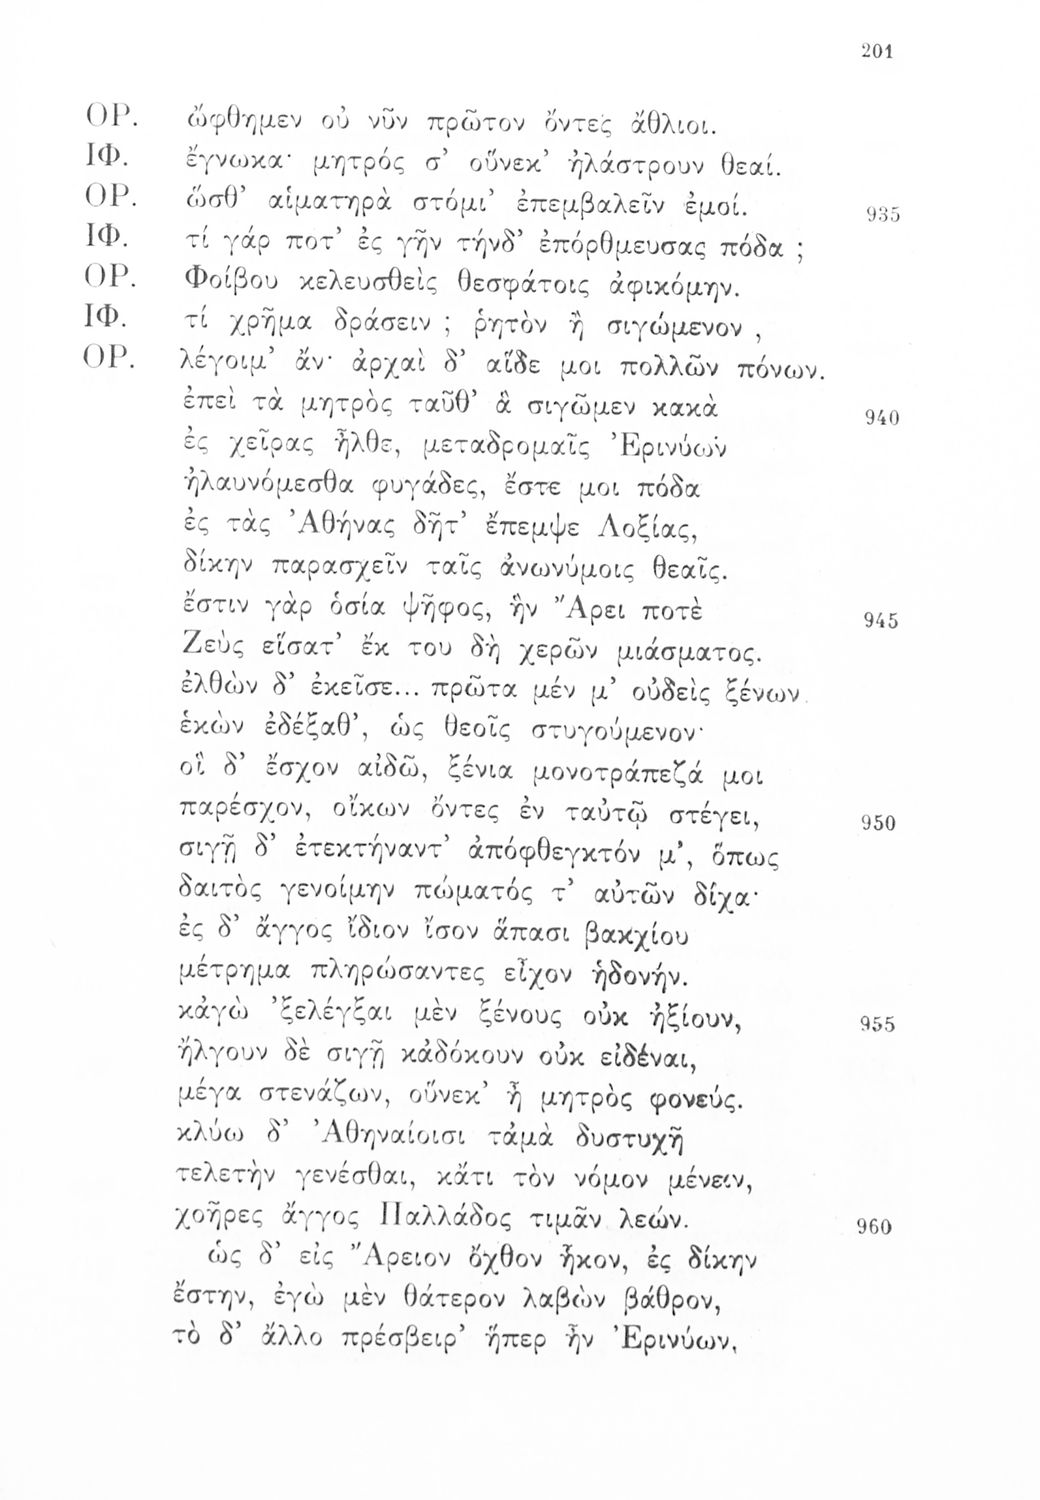 201
ΟΡ. ὤφθημεν οὐ νῦν πρῶτον ὄντες ἄθλιοι.
ΙΦ. ἔγνωκα· μητρός σ’ οὕνεκ’ ἠλάστρουν θεαί.
ΟΡ. ὥσθ’ αἱματηρὰ στόμι’ ἐπεμβαλεῖν ἐμοί. 935
ΙΦ. τί γάρ ποτ’ ἐς γῆν τήνδ’ ἐπόρθμευσας πόδα ;
ΟΡ. Φοίβου κελευσθεὶς θεσφάτοις ἀφικόμην.
ΙΦ. τί χρῆμα δράσειν ; ῥητὸν ἢ σιγώμενον ,
ΟΡ. λέγοιμ’ ἄν· ἀρχαὶ δ’ αἵδε μοι πολλῶν πόνων.
ἐπεὶ τὰ μητρὸς ταῦθ’ ἃ σιγῶμεν κακὰ 940
ἐς χεῖρας ἦλθε, μεταδρομαῖς Ἐρινύων
ἠλαυνόμεσθα φυγάδες, ἔστε μοι πόδα
ἐς τὰς Ἀθήνας δῆτ’ ἔπεμψε Λοξίας,
δίκην παρασχεῖν ταῖς ἀνωνύμοις θεαῖς.
ἔστιν γὰρ ὁσία ψῆφος, ἣν Ἄρει ποτὲ 945
Ζεὺς εἵσατ’ ἔκ του δὴ χερῶν μιάσματος.
ἐλθὼν δ’ ἐκεῖσε... πρῶτα μέν μ’ οὐδεὶς ξένων
ἑκὼν ἐδέξαθ’, ὡς θεοῖς στυγούμενον·
οἳ δ’ ἔσχον αἰδῶ, ξένια μονοτράπεζά μοι
παρέσχον, οἴκων ὄντες ἐν ταὐτῷ στέγει, 950
σιγῇ δ’ ἐτεκτήναντ’ ἀπόφθεγκτόν μ’, ὅπως
δαιτὸς γενοίμην πώματός τ’ αὐτῶν δίχα·
ἐς δ’ ἄγγος ἴδιον ἴσον ἅπασι βακχίου
μέτρημα πληρώσαντες εἶχον ἡδονήν.
κἀγὼ ’ξελέγξαι μὲν ξένους οὐκ ἠξίουν, 955
ἤλγουν δὲ σιγῇ κἀδόκουν οὐκ εἰδέναι,
μέγα στενάζων, οὕνεκ’ ἦ μητρὸς φονεύς.
κλύω δ’ Ἀθηναίοισι τἀμὰ δυστυχῆ
τελετὴν γενέσθαι, κἄτι τὸν νόμον μένειν,
χοῆρες ἄγγος Παλλάδος τιμᾶν λεών. 960
ὡς δ’ εἰς Ἄρειον ὄχθον ἧκον, ἐς δίκην
ἔστην, ἐγὼ μὲν θάτερον λαβὼν βάθρον,
τὸ δ’ ἄλλο πρέσβειρ’ ἥπερ ἦν Ἐρινύων,